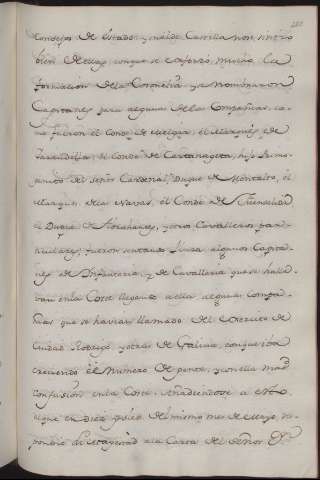 Consejos de Estado, y
bien de
formacion de la Coronelia, y se nombraron
Capitanes para algunas de las Compañias, co-
mo fueron el Conde de Melgar, el Marques de
Jarandilla, el Conde de Cartanageta, hijo
del señor Cardenal, Duque de Montalto, el
Marques de las Navas, el Conde de
el Duque de Abrahanes, y otros Cavalleros par-
ticulares; fueron sentando Plaza algunos Capita-
nes de Infanteria, y de Cavalleria que se halla-
van en la Corte llegando a ella algunas compa-
ñias que se havian llamado del Exercito de
Ciudad Rodrigo y otras de Galicia, con que iba
creciendo el numero de gente, y con ella mas
confusion en la Corte. Añadiendose a
que en Diez y seis del mismo mes de Mayo, res-
pondio Su Magestad a la Carta del Señor Dn